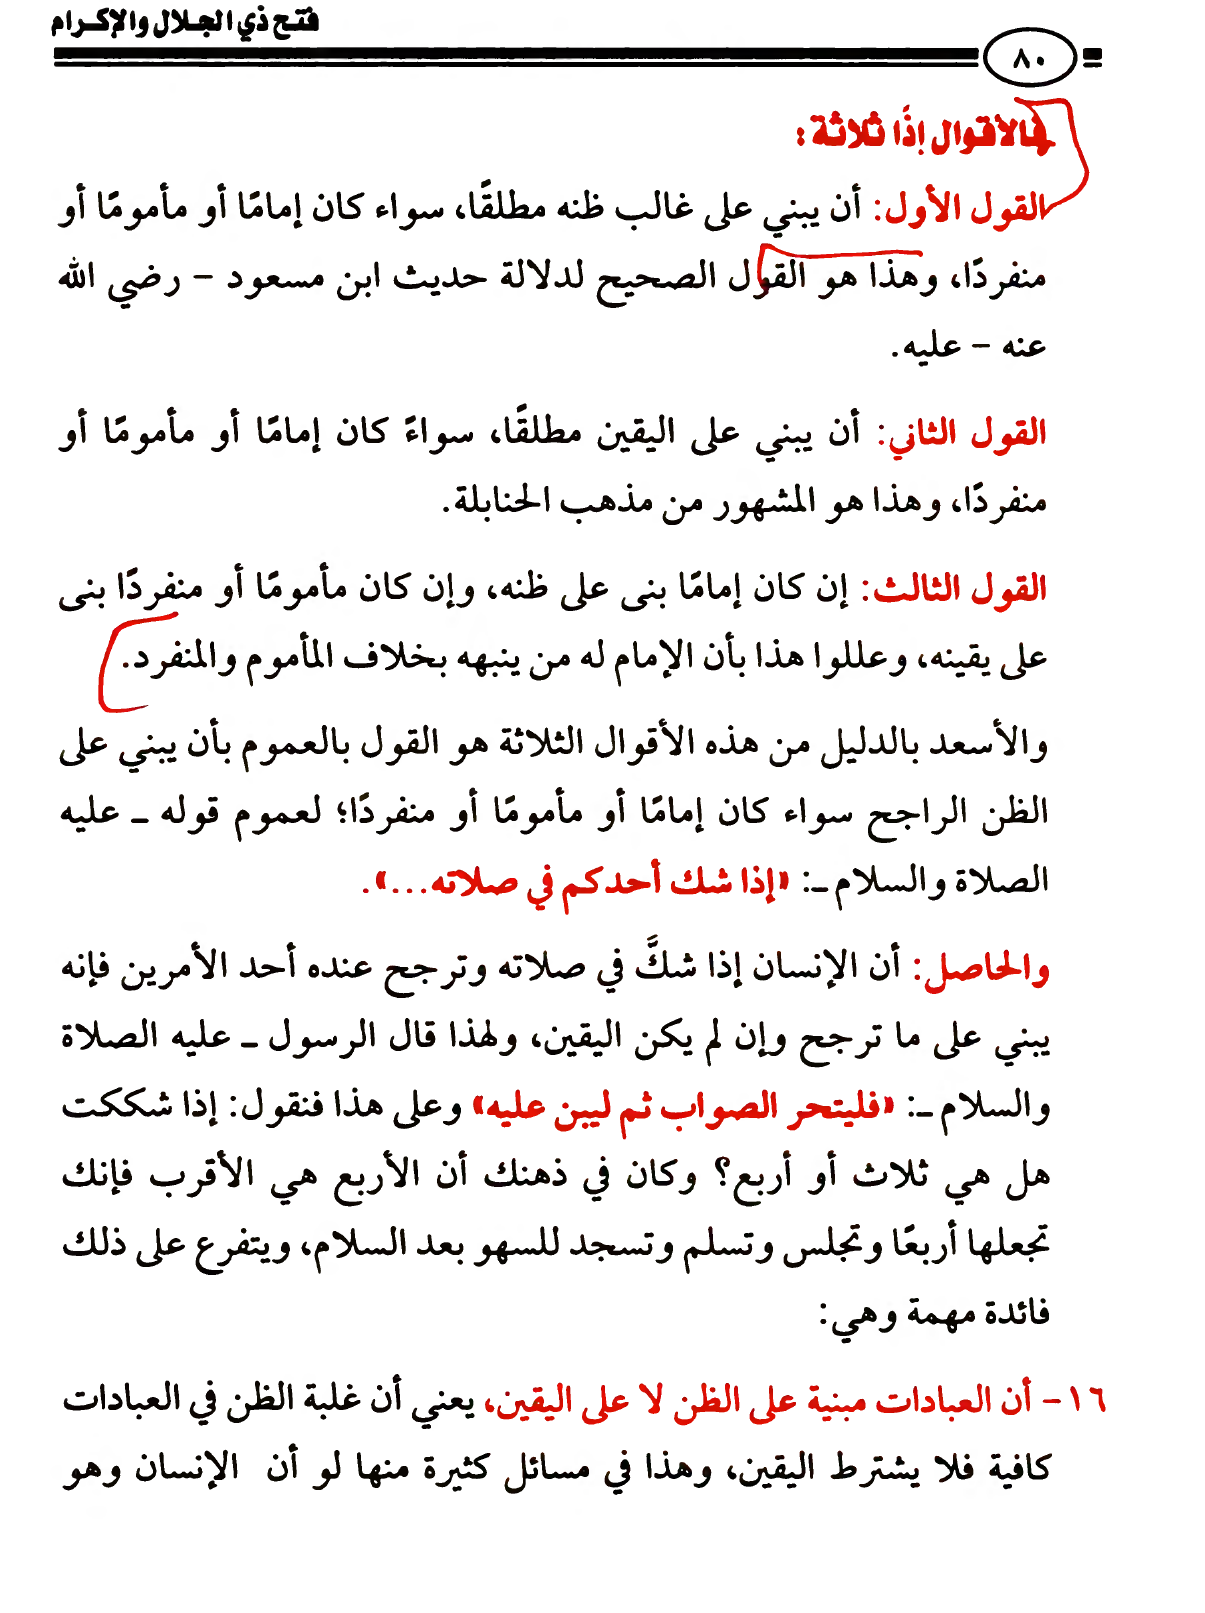 فتح ذي الجلال والإكرام
٨٠
فالأقوال إذًا ثلاثة:
القول الأول: أن يبني على غالب ظنه مطلقًا، سواء كان إمامًا أو مأمومًا أو
منفردًا، وهذا هو القول الصحيح لدلالة حديث ابن مسعود - رضي الله
عنه - عليه.
القول الثاني: أن يبني على اليقين مطلقًا، سواءً كان إمامًا أو مأمومًا أو
منفردًا، وهذا هو المشهور من مذهب الحنابلة.
القول الثالث: إن كان إمامًا بنى على ظنه، وإن كان مأمومًا أو منفردًا بنى
على يقينه، وعللوا هذا بأن الإمام له من ينبهه بخلاف المأموم والمنفرد.
والأسعد بالدليل من هذه الأقوال الثلاثة هو القول بالعموم بأن يبني على
الظن الراجح سواء كان إمامًا أو مأمومًا أو منفردًا؛ لعموم قوله ـ عليه
الصلاة والسلام ـ: «إذا شك أحدكم في صلاته...».
والحاصل: أن الإنسان إذا شكَّ في صلاته وترجح عنده أحد الأمرين فإنه
يبني على ما ترجح وإن لم يكن اليقين، ولهذا قال الرسول ـ عليه الصلاة
والسلام ـ: «فليتحر الصواب ثم ليبن عليه» وعلى هذا فنقول: إذا شككت
هل هي ثلاث أو أربع؟ وكان في ذهنك أن الأربع هي الأقرب فإنك
تجعلها أربعًا وتجلس وتسلم وتسجد للسهو بعد السلام، ويتفرع على ذلك
فائدة مهمة وهي:
١٦- أن العبادات مبنية على الظن لا على اليقين، يعني أن غلبة الظن في العبادات
كافية فلا يشترط اليقين، وهذا في مسائل كثيرة منها لو أن الإنسان وهو